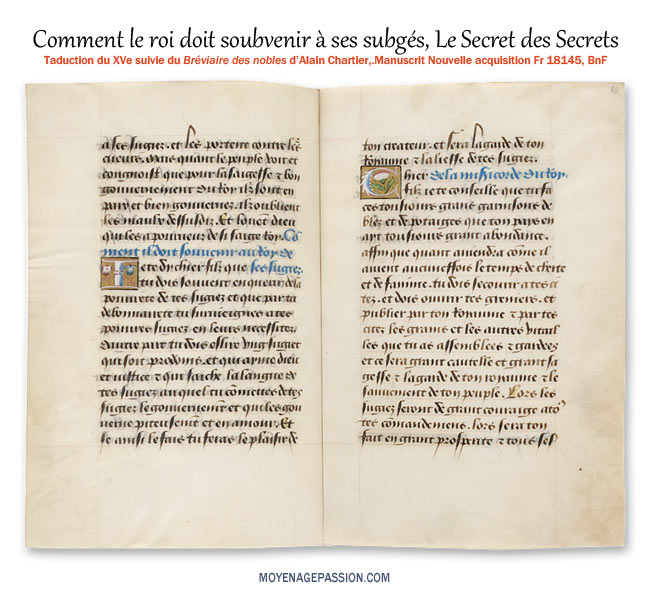 Comment le roi doit soubvenir à ses subgés, Le Secret des Secrets
Taduction du XVe suivie du Bréviaire des nobles d'Alain Chartier,.Manuscrit Nouvelle acquisition Fr 18145, BnF
a ses sugiez. et les portent contre
Mais quant le peuple voit et
congnoist que pour la sagesse & bon
gouvernement du Roy ilz sont en
paix et bien gouvernez. ilz oublient
les maulx dessusdiz. Et louent dieu
qui les a pourveuz de si saige Roy. Co
ment il doit souvenir au Roy de
Te te dy chier filz que ses sugiez.
tu dois souvent enquerir de la
pouvrete de tes sugiez et que par ta
debonnairete tu surviegnes a tes
pouvres sugiez en leurs necessitez.
Dautre part tu dois eslire ung sugiet
qui soit prodoms. et qui ayme dieu
et iustice & qui saiche la langue de
tes sugiez auquel tu comettes de tes
sugiez le gouvernement et qui les gou
verne piteusement et en amour. Et
se ainsi le fais tu feras le plaisir de
ton createur. et sera la garde de ton
Royaume & la liesse de tes sugiez.
Chier De la misericorde du Roy.
filz ie te conseille que tu fa
ces tousiours grans garnisons de
blez et de potaiges que ton pays en
ayt tousiours grant abondance.
affin que quant aviendra come il
avient aucuneffois le temps de cherte
et de famine. tu dois secourir a tes ci
tez. et dois ouvrir tes greniers. et
publier par ton Royaume & par tes
citez les grains et les autres vitail
les que tu as assemblees & gardees
et ce sera grant cautelle et grant sa
gesse & la garde de ton royaume & le
sauvement de ton peuple. Lors les
sugiez seront de grant couraige a to9
tes comandemens. lors sera ton
fait en grant prosperite & tous ses
MOYENAGEPASSION.COM